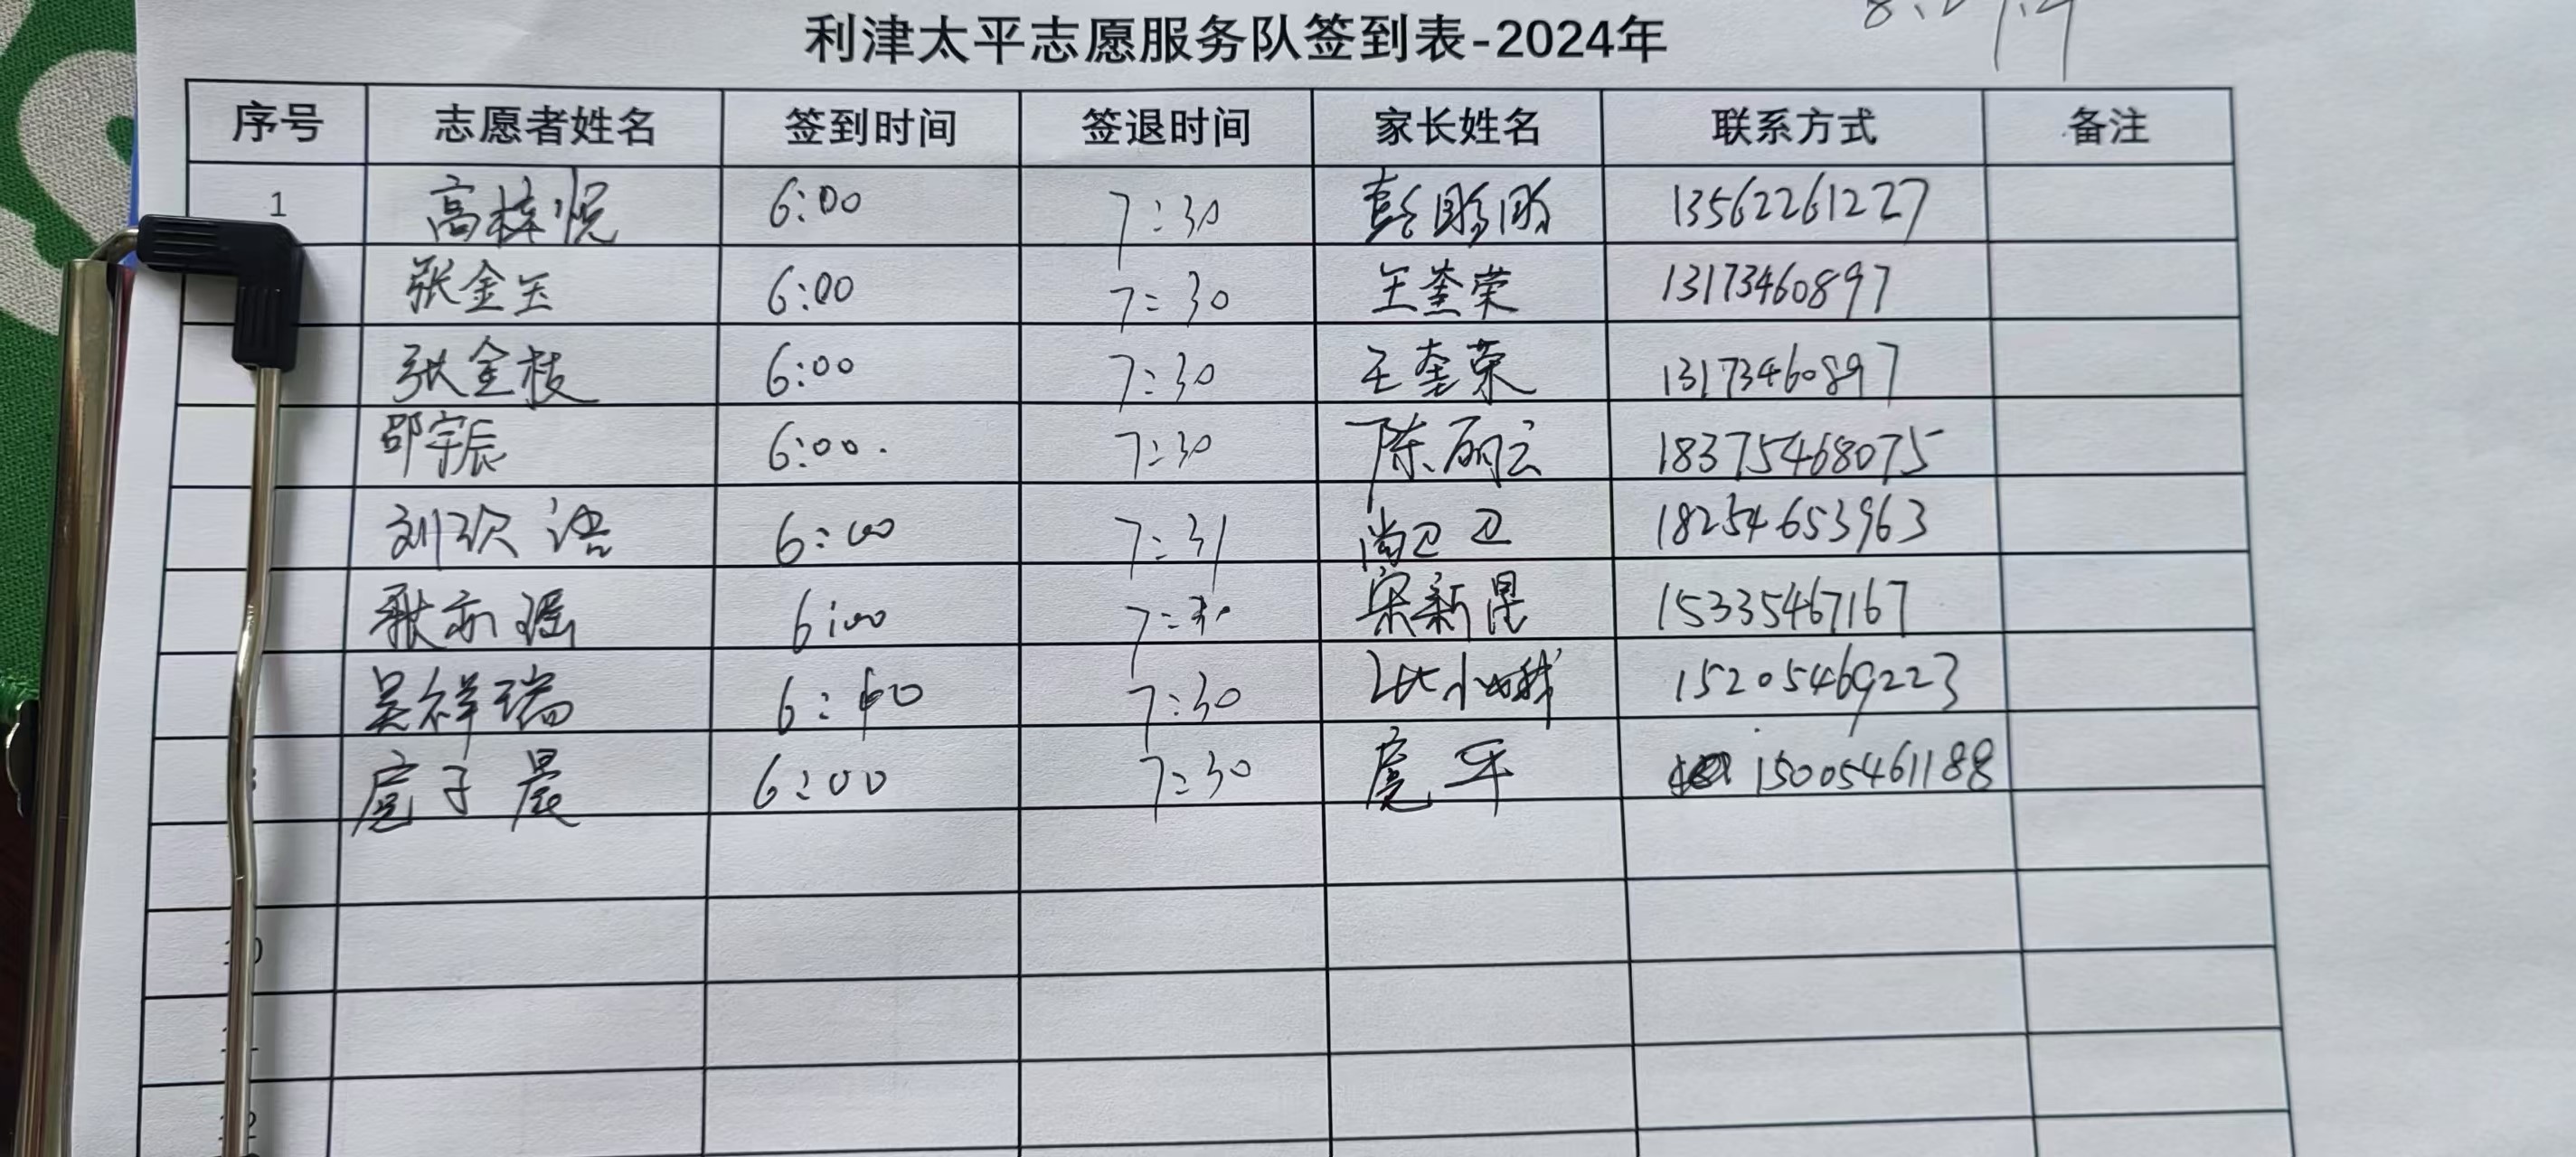 利津太平志愿服务队签到表-2024年
序号 志愿者姓名 签到时间 签退时间 家长姓名 联系方式 备注
1 高梓悦 6:00 7:30 彭 13562261227
张金玉 6:00 7:30 王奎荣 13173460897
张金枝 6:00 7:30 王奎荣 13173460897
邵宇辰 6:00. 7:30 陈丽云 18375468075
刘 语 6:00 7:31 尚卫卫 18254653963
瑶 6:00 宋新 15335467167
吴祥瑞 7:30 小娥 15205469223
扈子晨 6:00 7:30 扈 15005461188